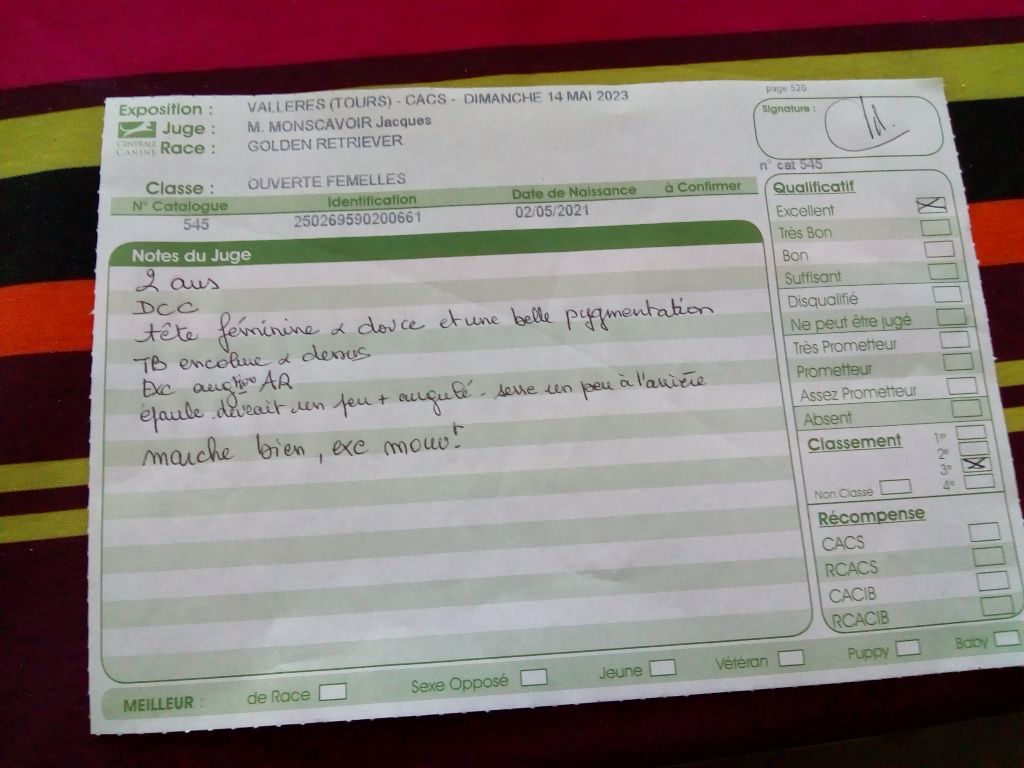 page 520
Exposition : VALLERES (TOURS) - CACS - DIMANCHE 14 MAI 2023
Signature :
CENTRALE CANINE
Juge : M. MONSCAVOIR Jacques
Race : GOLDEN RETRIEVER
n° cat 545
Classe : OUVERTE FEMELLES
N° Catalogue Identification Date de Naissance à Confirmer
545 250269590200661 02/05/2021
Notes du Juge
2 ans
DCC
tête féminine & douce et une belle pygmentation
TB encolure & dessus
Exc angtion AR
épaule devrait un peu + angulé - serre un peu à l'arrière
marche bien, exc mouvt
Qualificatif
Excellent
Très Bon
Bon
Suffisant
Disqualifié
Ne peut être jugé
Très Prometteur
Prometteur
Assez Prometteur
Absent
Classement 1er
2e
3e
Non Classé 4e
Récompense
CACS
RCACS
CACIB
RCACIB
MEILLEUR : de Race Sexe Opposé Jeune Vétéran Puppy Baby